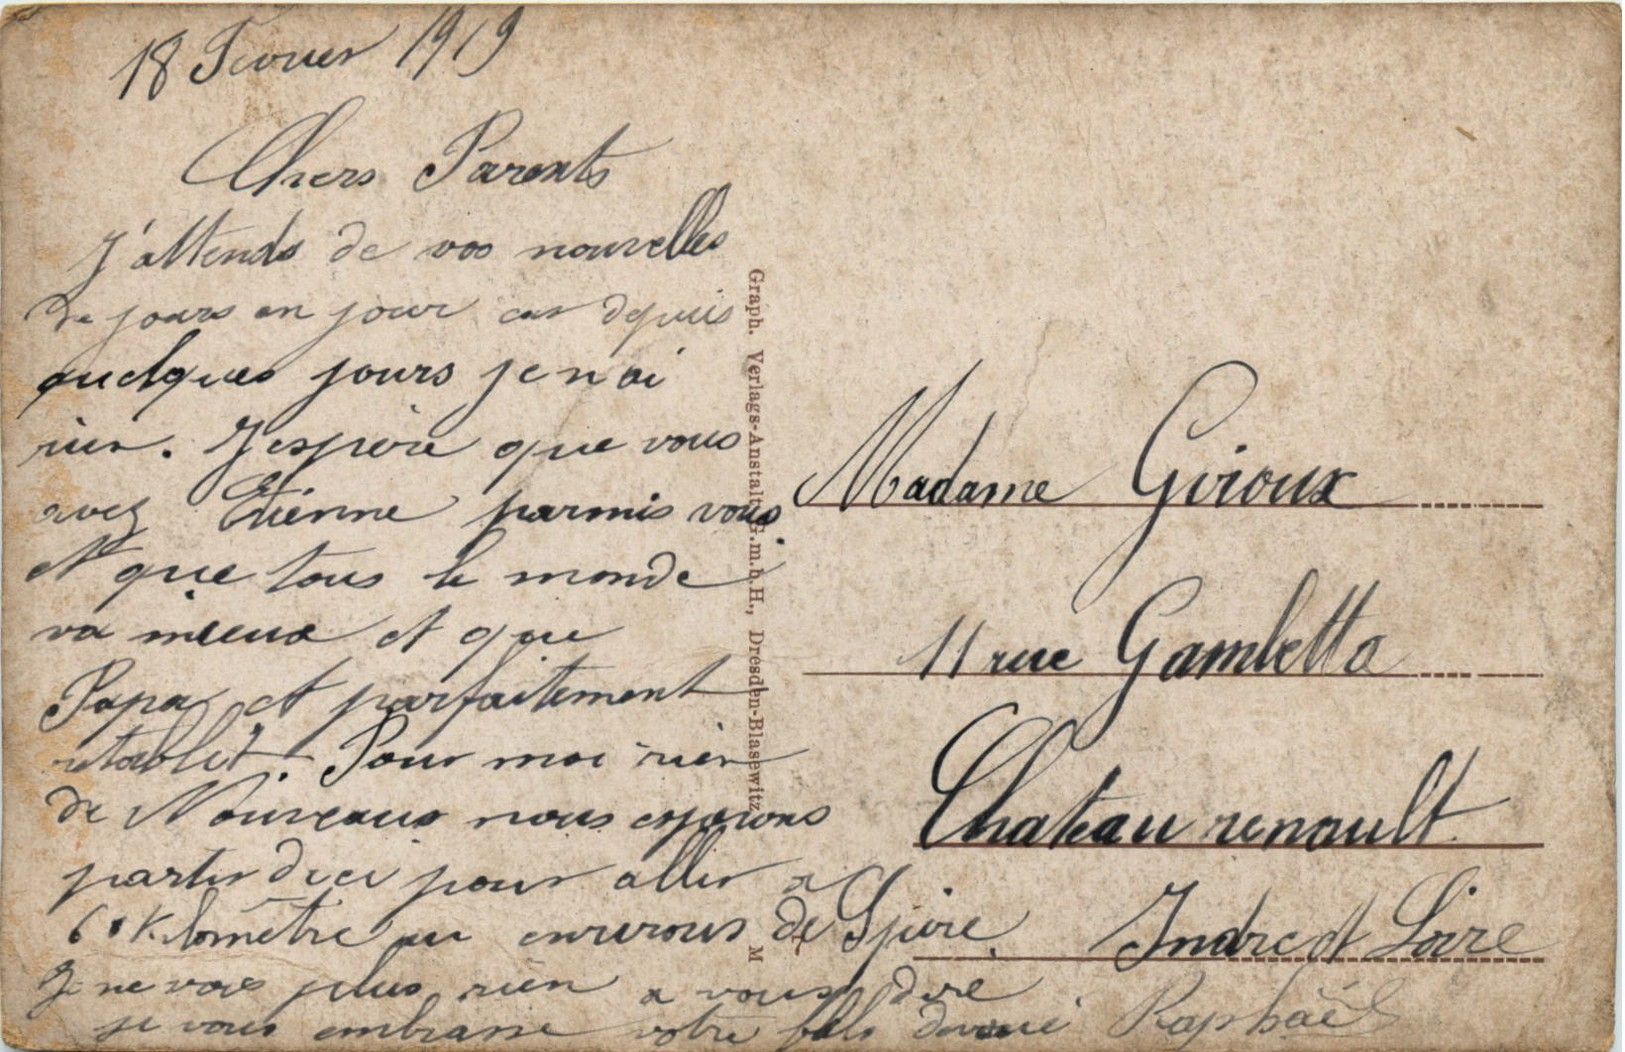 18 Fevrier 1919
Chers Parents
J'attends de vos nouvelles
de jours en jour car depuis
quelques jours je n ai
rien. J espere que vous
avez Etienne parmis vous
et que tous le monde
va mieux et que
Papa et parfaitement
retablit. Pour moi rien
de Nouveaux nous esperons
partir d ici pour aller a
60 Kilomètre au environs de Spire.
Je ne vois plus rien a vous dire
je vous embrasse votre fils devoué Raphaël
Graph. Verlags-Anstalt G.m.b.H., Dresden-Blasewitz
M
Madame Giroux
11 rue Gambetta
Chateau renault
Indre et Loire